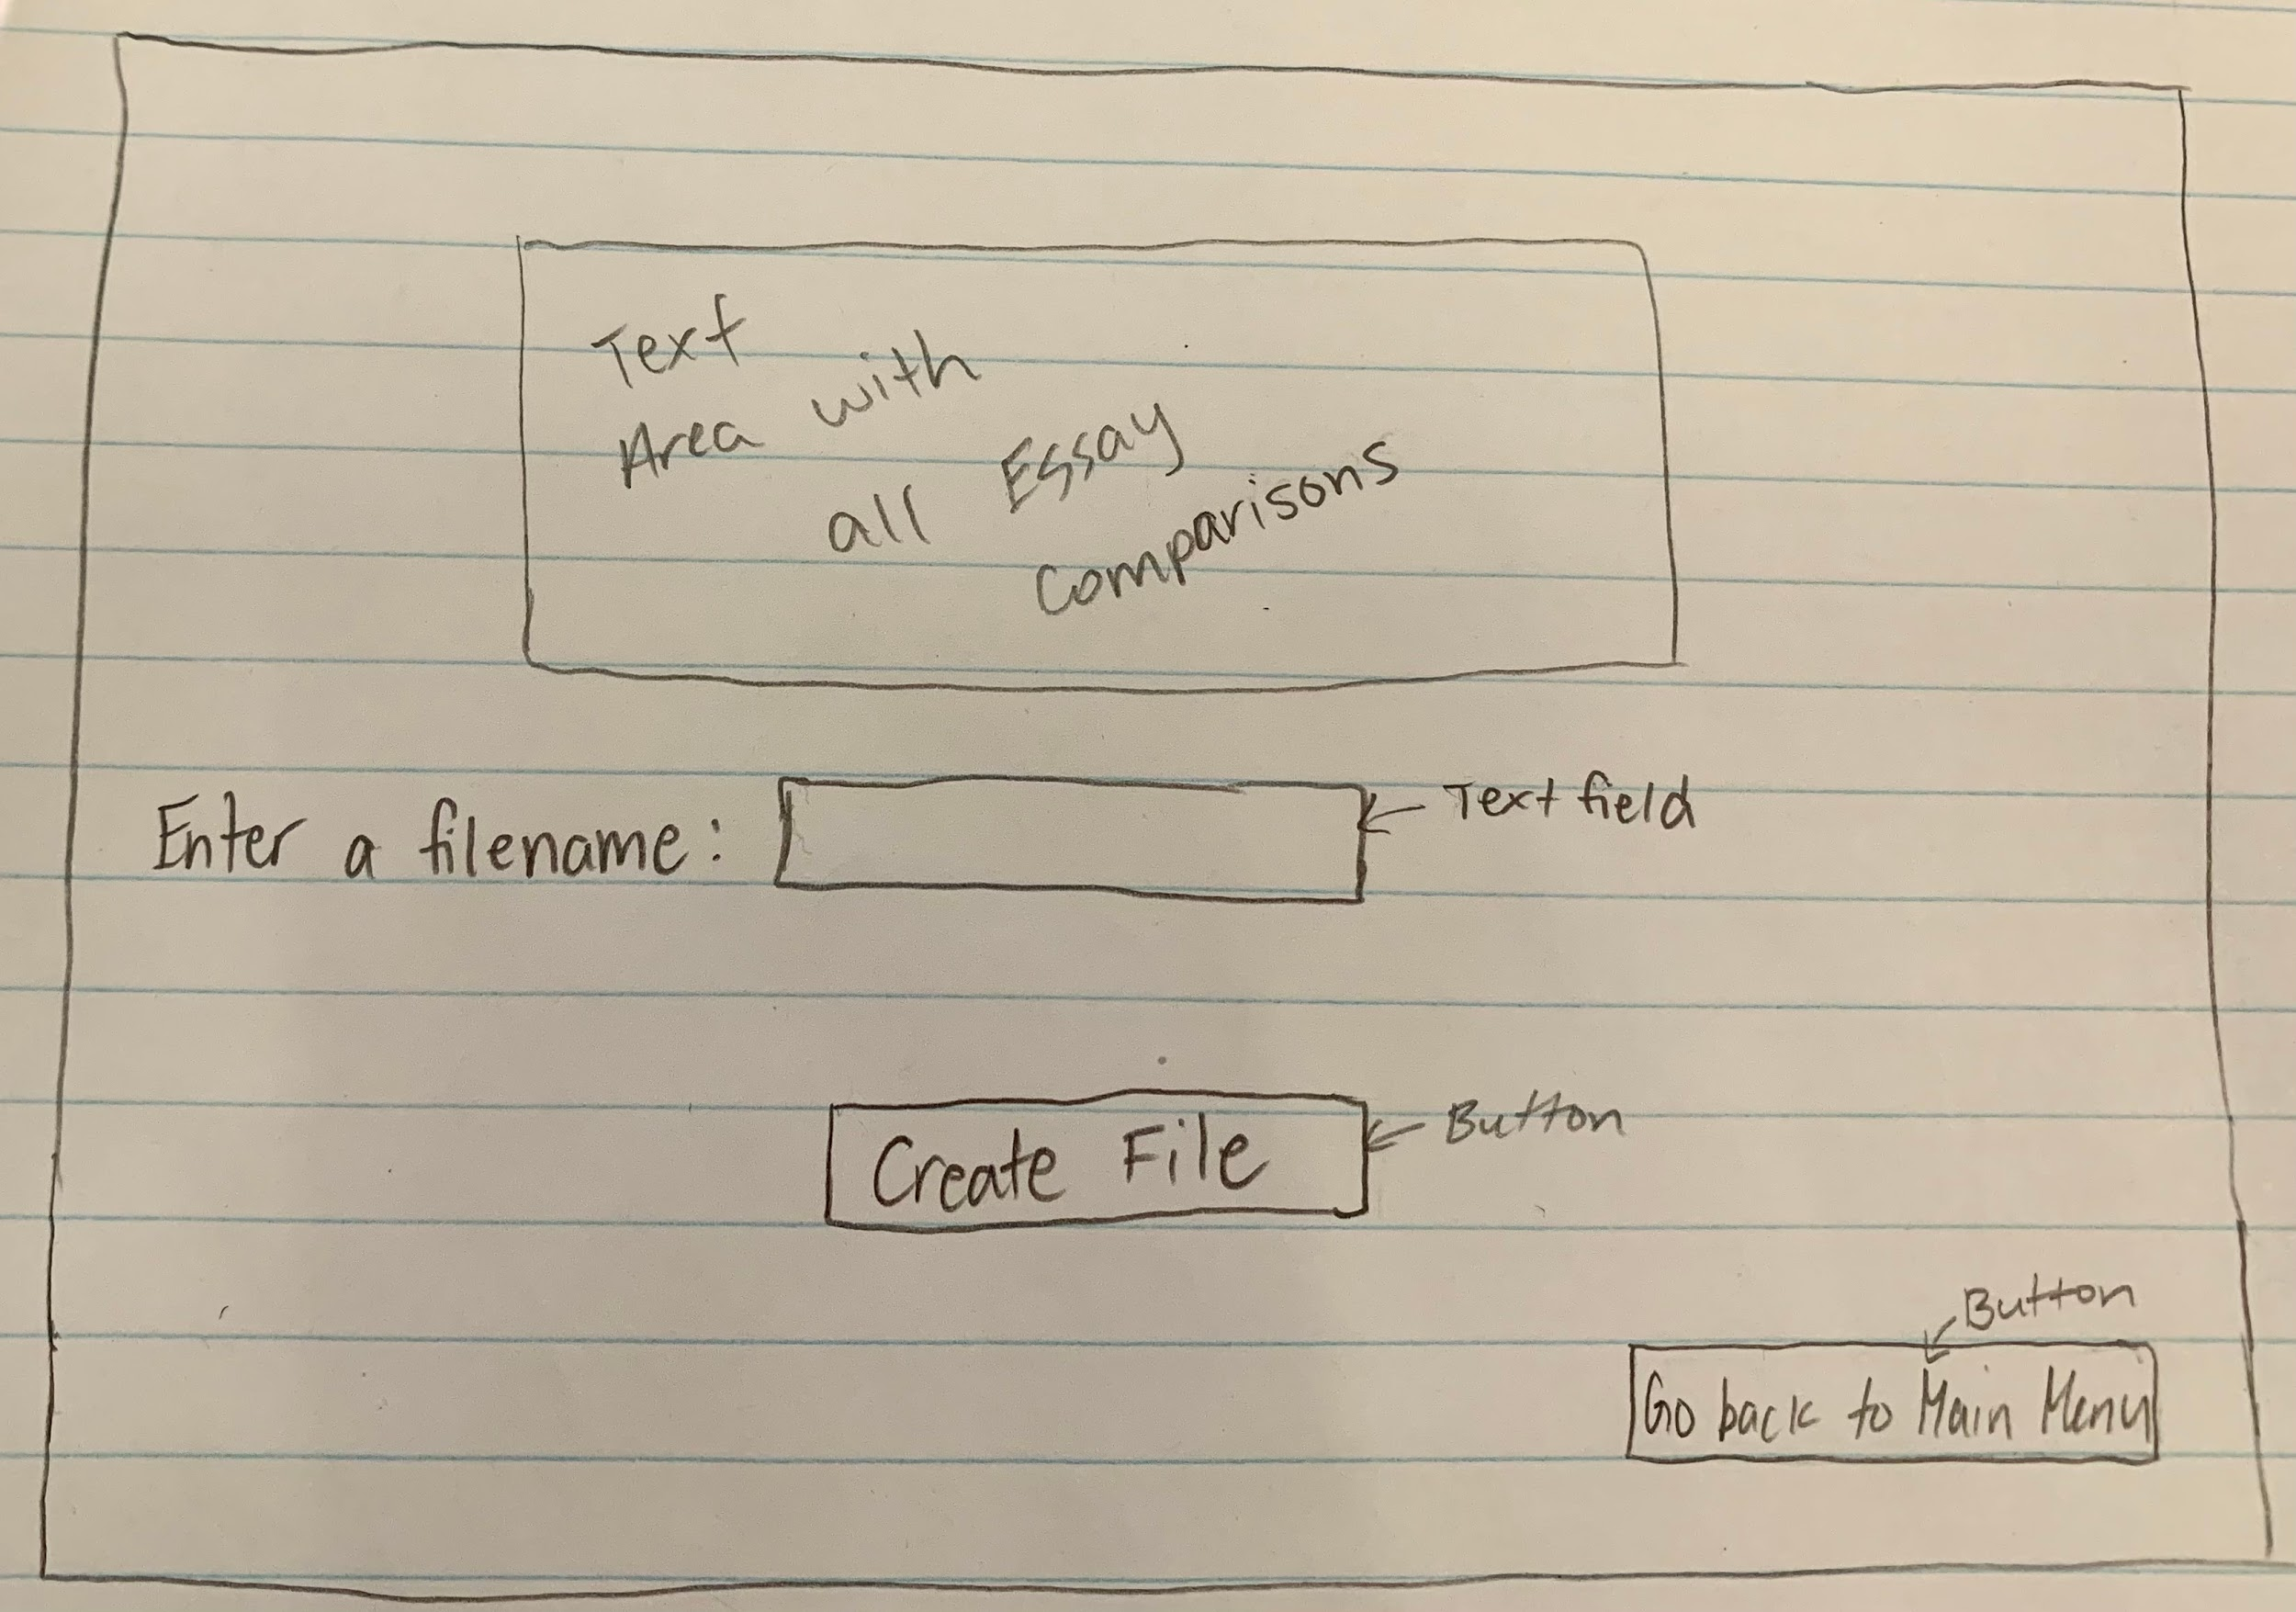 Text
Area with
all Essay
Comparisons
Enter a filename: Text field
Create File Button
Button
Go back to Main Menu